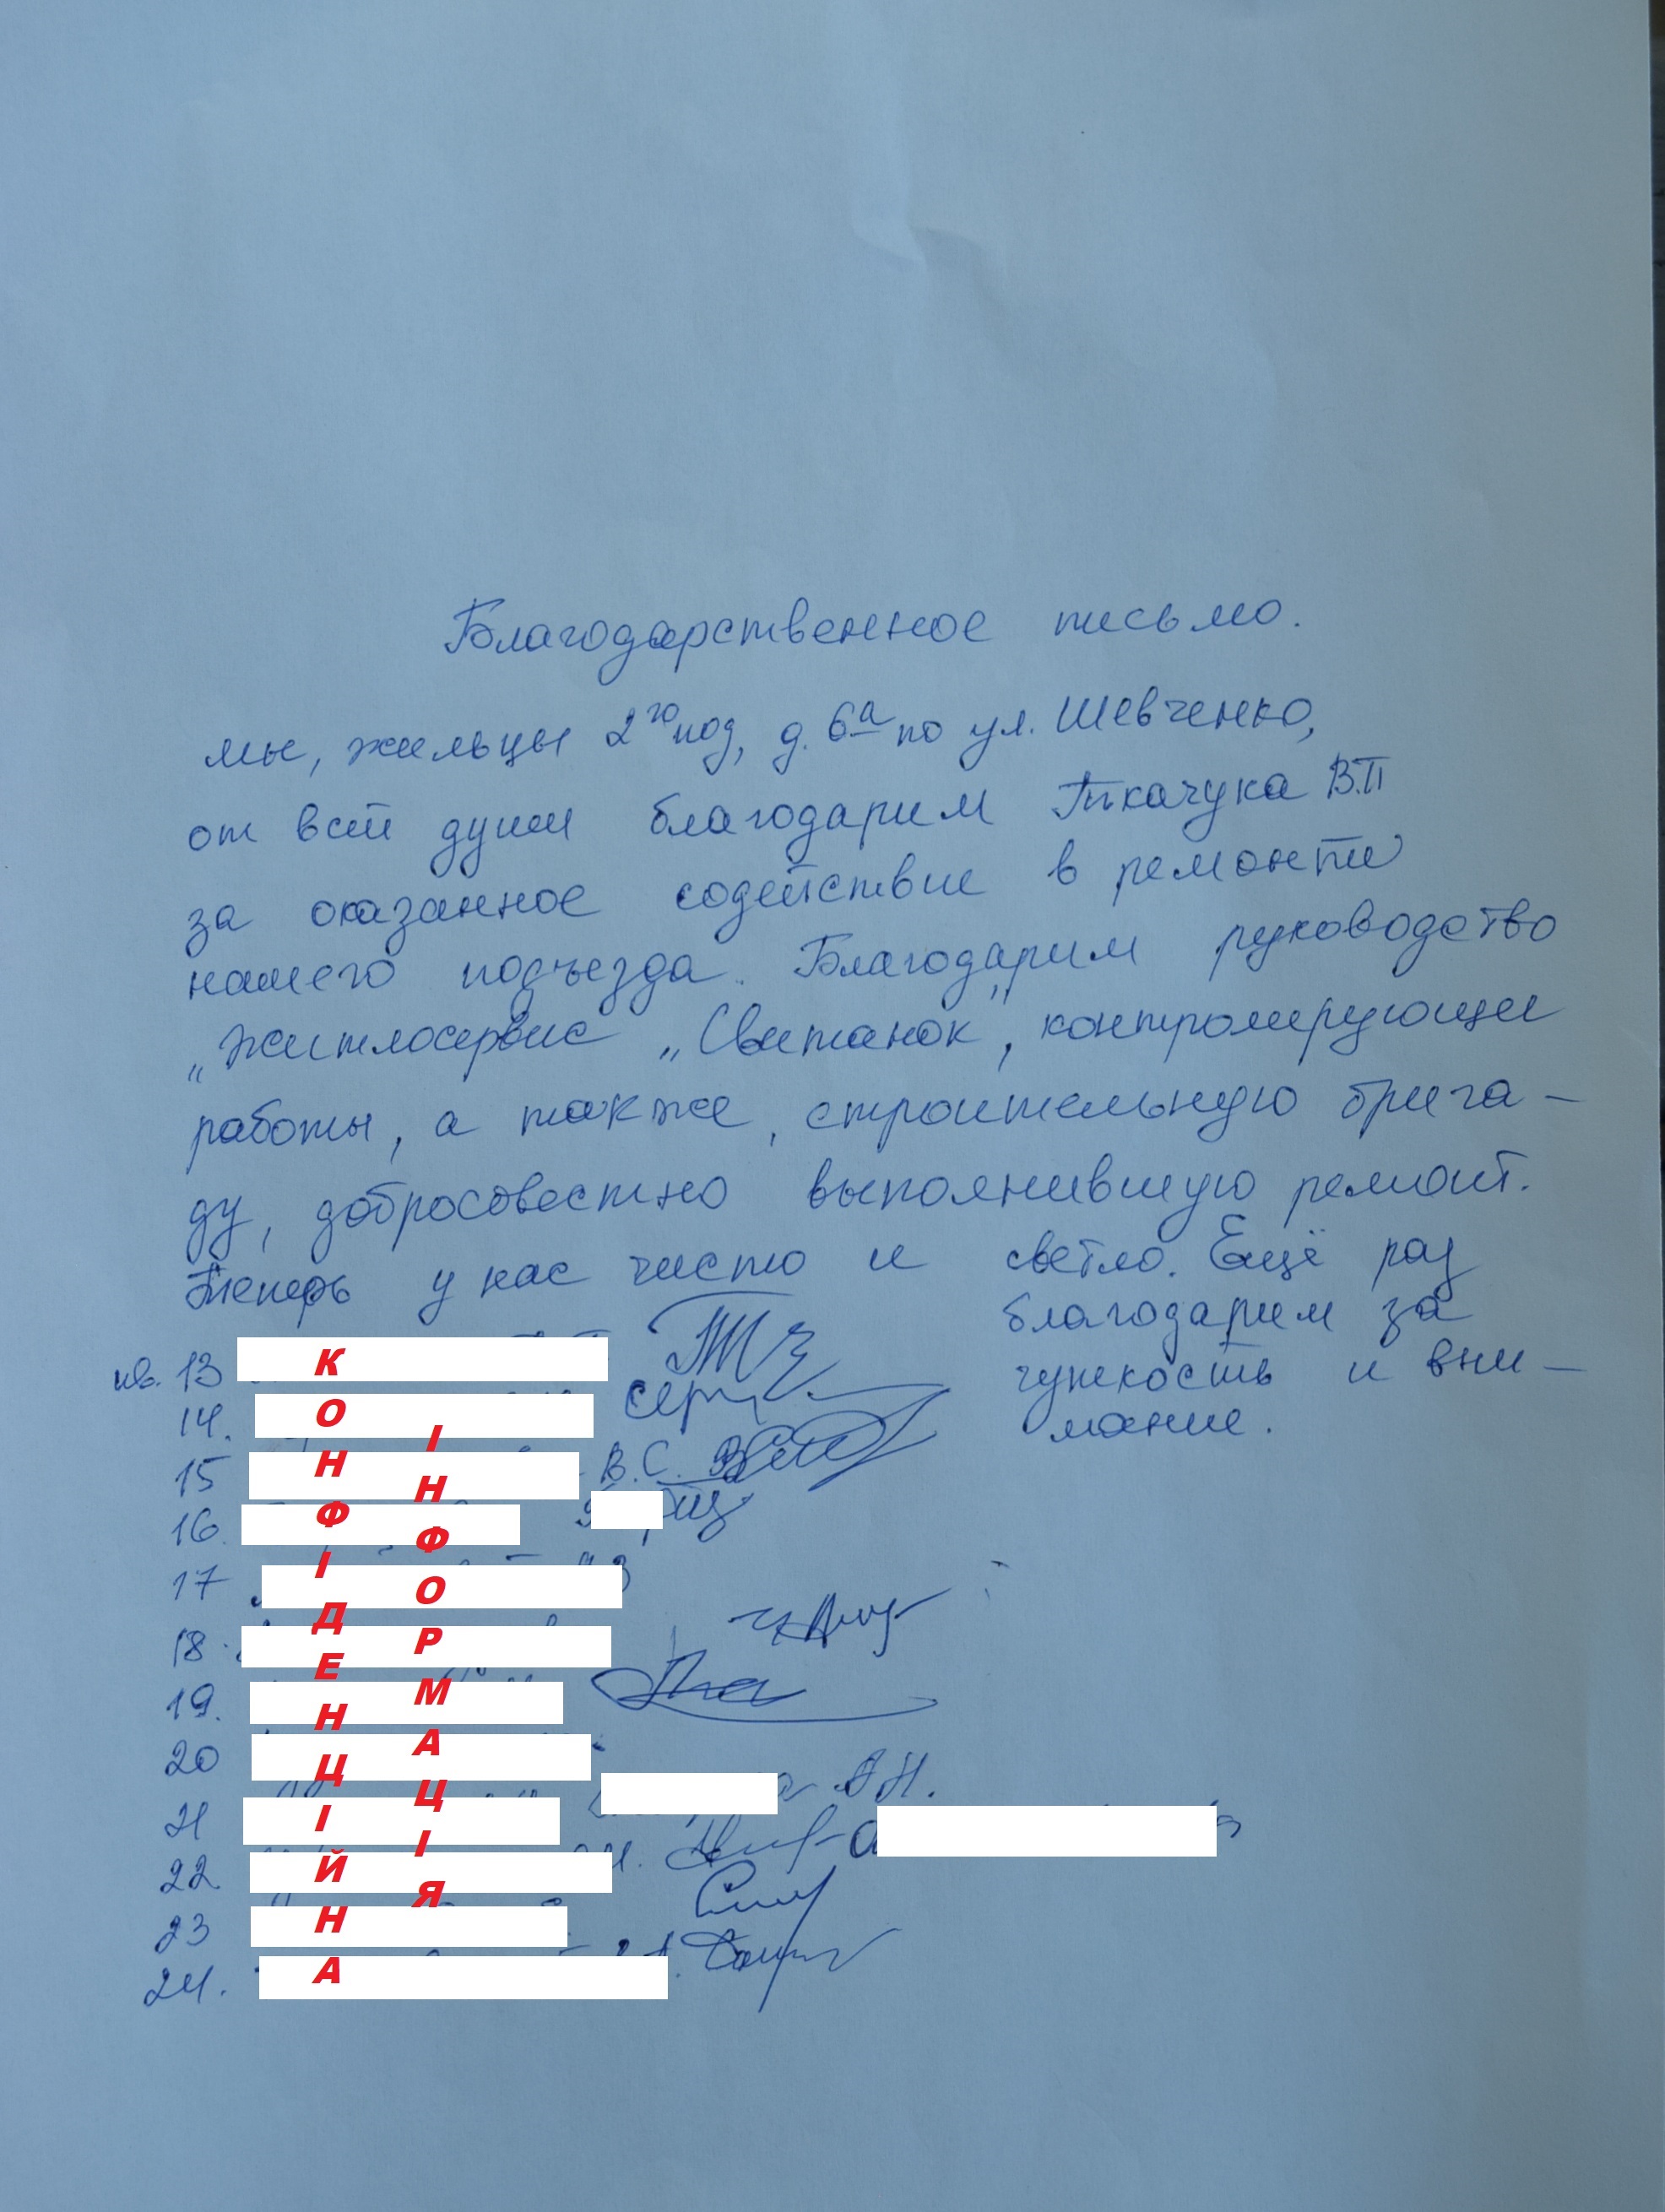 Благодарственное письмо.
Мы, жильцы 2го под, д. 6а по ул. Шевченко,
от всей души благодарим Ткачука В.П
за оказанное содействие в ремонте
нашего подъезда. Благодарим руководство
„Житлосервис „Свитанок", контролирующее
работы, а также, строительную брига-
ду, добросовестно выполнившую ремонт.
Теперь у нас чисто и светло. Ещё раз
благодарим за
чуткость и вни-
мание.
кв. 13
14.
15 В.С.
16.
17
18
19.
20
21 А.Н.
22
23
24.
КОНФІДЕНЦІЙНА
ІНФОРМАЦІЯ